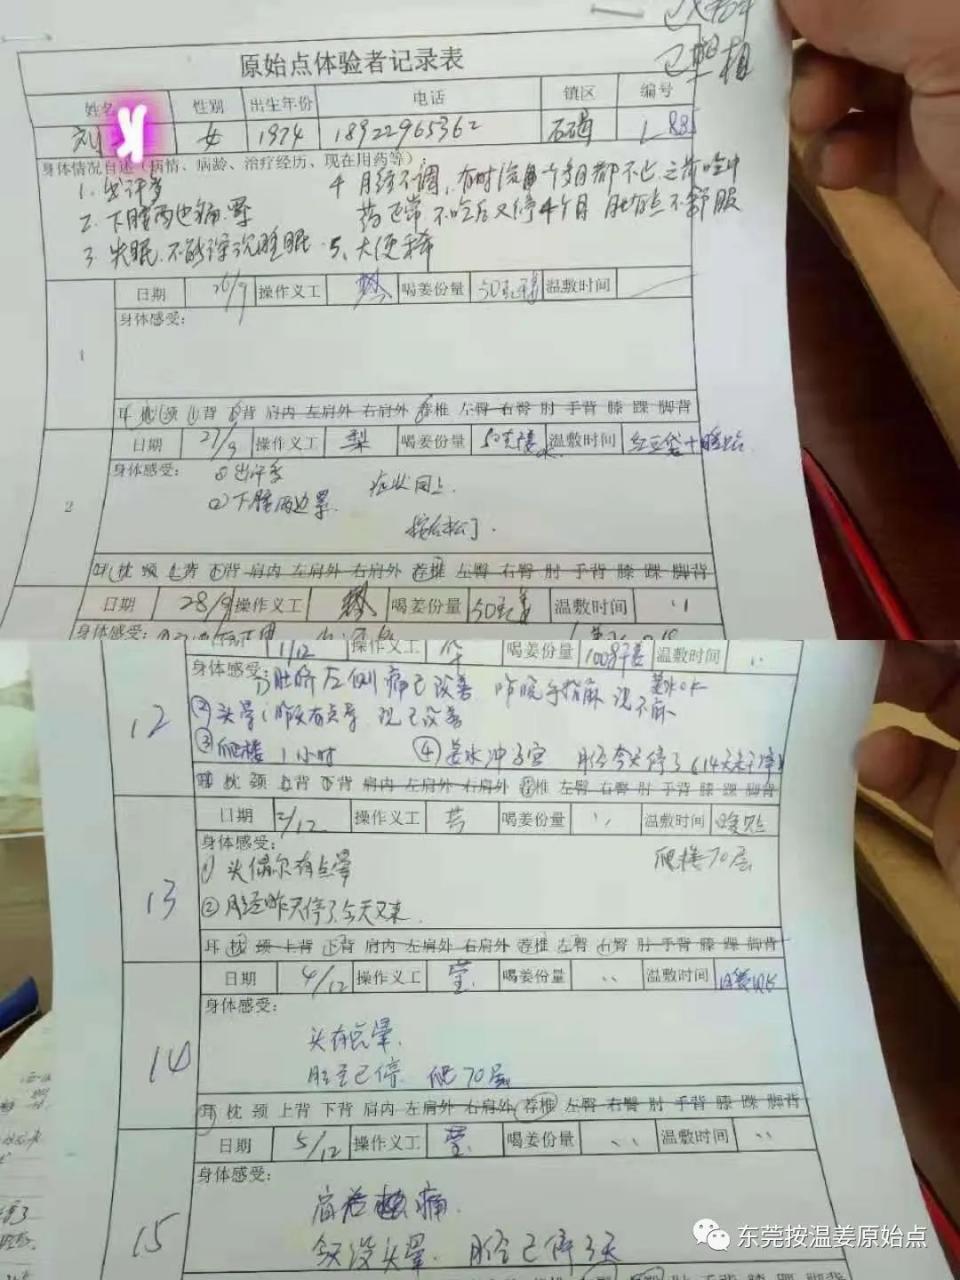 原始点体验者记录表
姓名 性别 出生年份 电话 镇区 编号
刘 女 1974 18922965362 石碣 L 88
身体情况自述(病情、病龄、治疗经历、现在用药等):
1. 出汗多
4 月经不调,有时候 一个多月都不止 之前吃中
2. 下腰两边痛
药正常 不吃后又停4个月 肚有点不舒服
3. 失眠,不能深沉睡眠.
5、大便稀
1
日期 26/9 操作义工 喝姜份量 50克干姜 温敷时间
身体感受:
耳 枕 颈 上背 下背 肩内 左肩外 右肩外 荐椎 左臀 右臀 肘 手背 膝 踝 脚背
2
日期 27/9 操作义工 梨 喝姜份量 50克 温敷时间 红豆袋+暖贴
身体感受:
①出汗多
②下腰两边累.
症状同上.
按后松了.
耳 枕 颈 上背 下背 肩内 左肩外 右肩外 荐椎 左臀 右臀 肘 手背 膝 踝 脚背
日期 28/9 操作义工 喝姜份量 50克姜 温敷时间 ''
身体感受:
12
日期 1/12 操作义工 华 喝姜份量 100g干姜 温敷时间 ''
身体感受:
①肚脐左侧痛已改善. 昨晚手指麻 现不麻
姜水OK
②头晕:昨天有点晕 现已改善
③爬楼 1小时 ④姜水冲子宫 月经今天停了(14天 )
耳 枕 颈 上背 下背 肩内 左肩外 右肩外 荐椎 左臀 右臀 肘 手背 膝 踝 脚背
13
日期 2/12 操作义工 芳 喝姜份量 '' 温敷时间 暖贴
身体感受:
①头偶尔有点晕
爬楼70层
②月经昨天停了今天又来.
耳 枕 颈 上背 下背 肩内 左肩外 右肩外 荐椎 左臀 右臀 肘 手背 膝 踝 脚背
14
日期 4/12 操作义工 莹. 喝姜份量 '' 温敷时间
身体感受:
头有点晕.
月经已停. 爬70层
耳 枕 颈 上背 下背 肩内 左肩外 右肩外 荐椎 左臀 右臀 肘 手背 膝 踝 脚背
15
日期 5/12 操作义工 莹. 喝姜份量 '' 温敷时间 ''
身体感受:
痛.
今天没头晕. 月经已停了天
东莞按温姜原始点